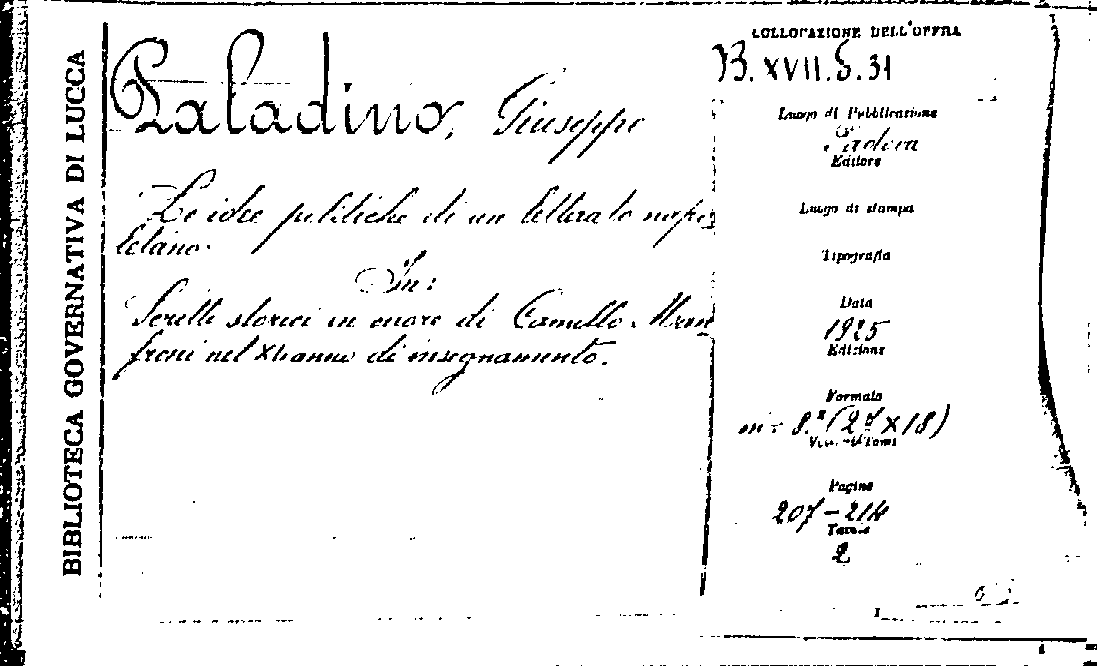 BIBLIOTECA GOVERNATIVA DI LUCCA
Paladino, Giuseppe
Le idee politiche di un letterato napo=
letano.
In:
Scritti storici in onore di Camillo Man
froni nel XL anno di insegnamento.
COLLOCAZIONE DELL'OPERA
B. XVII. S. 31
Luogo di Pubblicazione
Padova
Editore
Luogo di stampa
Tipografia
Data
1925
Edizione
Formato
in = 8.° (27 x 18)
Pagine
207 - 214
Tavole
2